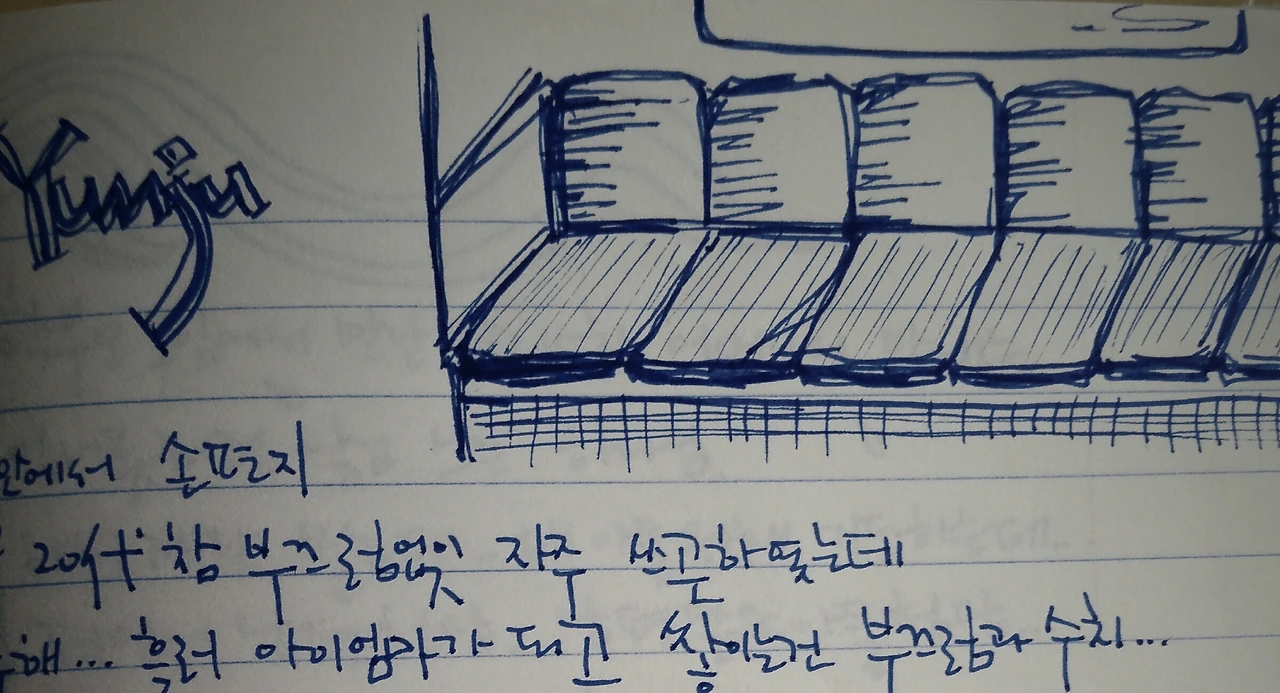 Yunju
안에서 손편지
20代 참 부끄럼없이 자주 쓰곤하였는데
해... 흘러 아이엄마가 되고 쌓이는건 부끄럼과 수치...